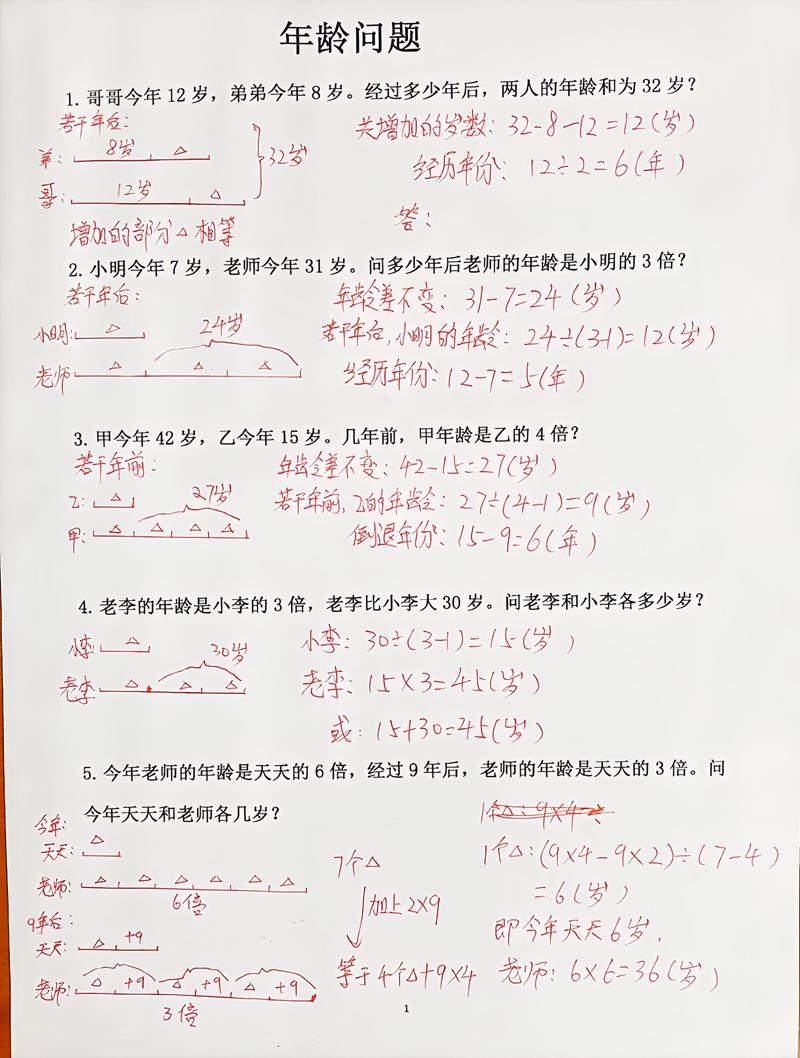 年龄问题
1. 哥哥今年 12 岁，弟弟今年 8 岁。经过多少年后，两人的年龄和为 32 岁？
若干年后：
弟： 8岁 △
哥： 12岁 △
32岁
增加的部分△相等
共增加的岁数：32-8-12=12(岁)
经历年份：12÷2=6(年)
答：
2. 小明今年 7 岁，老师今年 31 岁。问多少年后老师的年龄是小明的 3 倍？
若干年后：
小明： △
24岁
老师： △ △ △
年龄差不变：31-7=24(岁)
若干年后，小明的年龄：24÷(3-1)=12(岁)
经历年份：12-7=5(年)
3. 甲今年 42 岁，乙今年 15 岁。几年前，甲年龄是乙的 4 倍？
若干年前：
乙： △
27岁
甲： △ △ △ △
年龄差不变：42-15=27(岁)
若干年前，乙的年龄：27÷(4-1)=9(岁)
倒退年份：15-9=6(年)
4. 老李的年龄是小李的 3 倍，老李比小李大 30 岁。问老李和小李各多少岁？
小李： △
30岁
老李： △ △ △
小李：30÷(3-1)=15(岁)
老李：15×3=45(岁)
或：15+30=45(岁)
5. 今年老师的年龄是天天的 6 倍，经过 9 年后，老师的年龄是天天的 3 倍。问
今年天天和老师各几岁？
今年：
天天： △
老师： △ △ △ △ △ △
6倍
9年后：
天天： △ +9
老师： △ +9 △ +9 △ +9
3倍
7个△
加上2×9
等于4个△+9×4
1个△：9×4-
1个△：(9×4-9×2)÷(7-4)
=6(岁)
即今年天天6岁，
老师：6×6=36(岁)
1